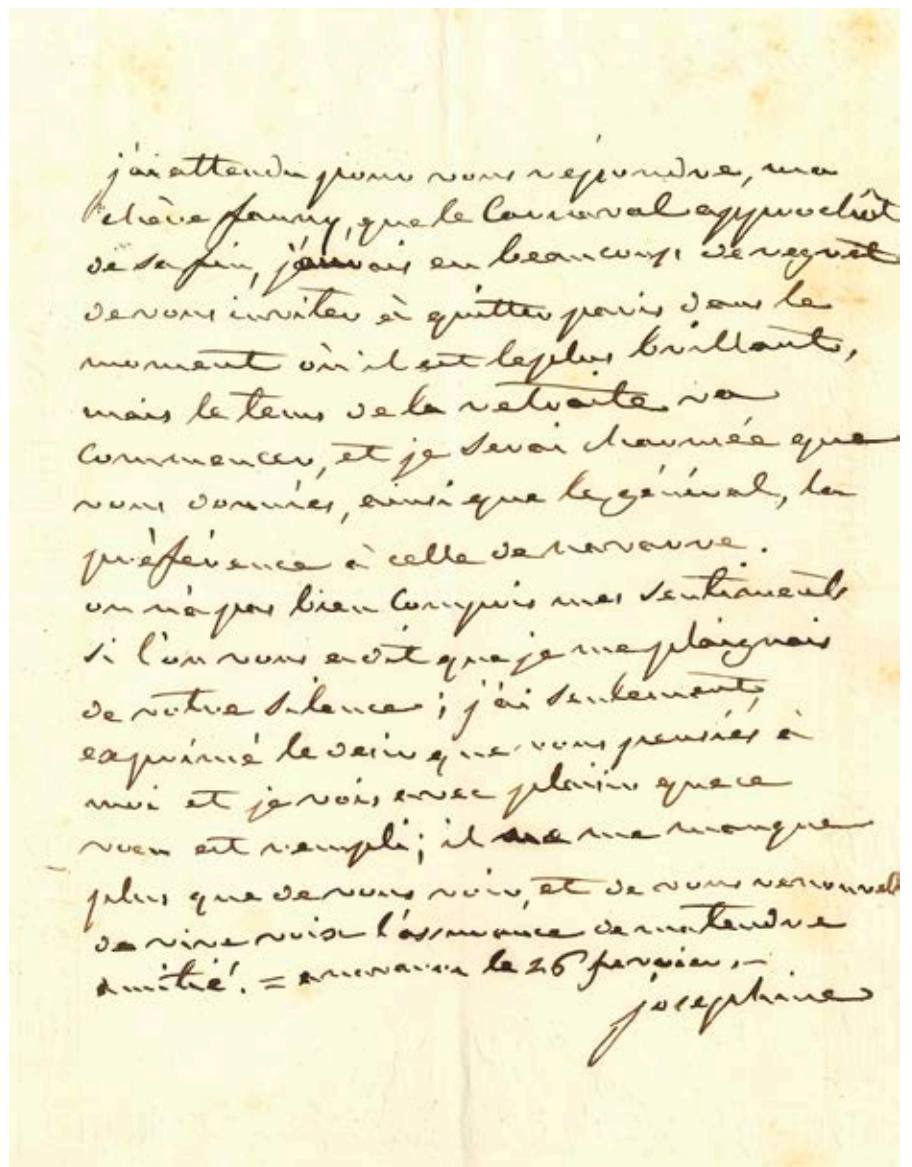 j'ai attendu pour vous répondre, ma
chère fanny, que le Carnaval approchât
de sa fin, j'aurais eu beaucoup de regret
de vous inviter à quitter paris dans le
moment où il est le plus brillant,
mais le tems de la retraite va
commencer, et je serai charmée que
vous donniés, ainsi que le général, la
préférence à celle de navarre.
on n'a pas bien compris mes sentiments
si l'on vous a dit que je me plaignais
de votre silence; j'ai seulement
exprimé le desir que vous pensiés à
moi et je vois avec plaisir que ce
voeu est rempli; il ne me manque
plus que de vous voir, et de vous renouveller
de vive voix l'assurance de ma tendre
amitié. = a navarre le 26 fevrier. -
josephine